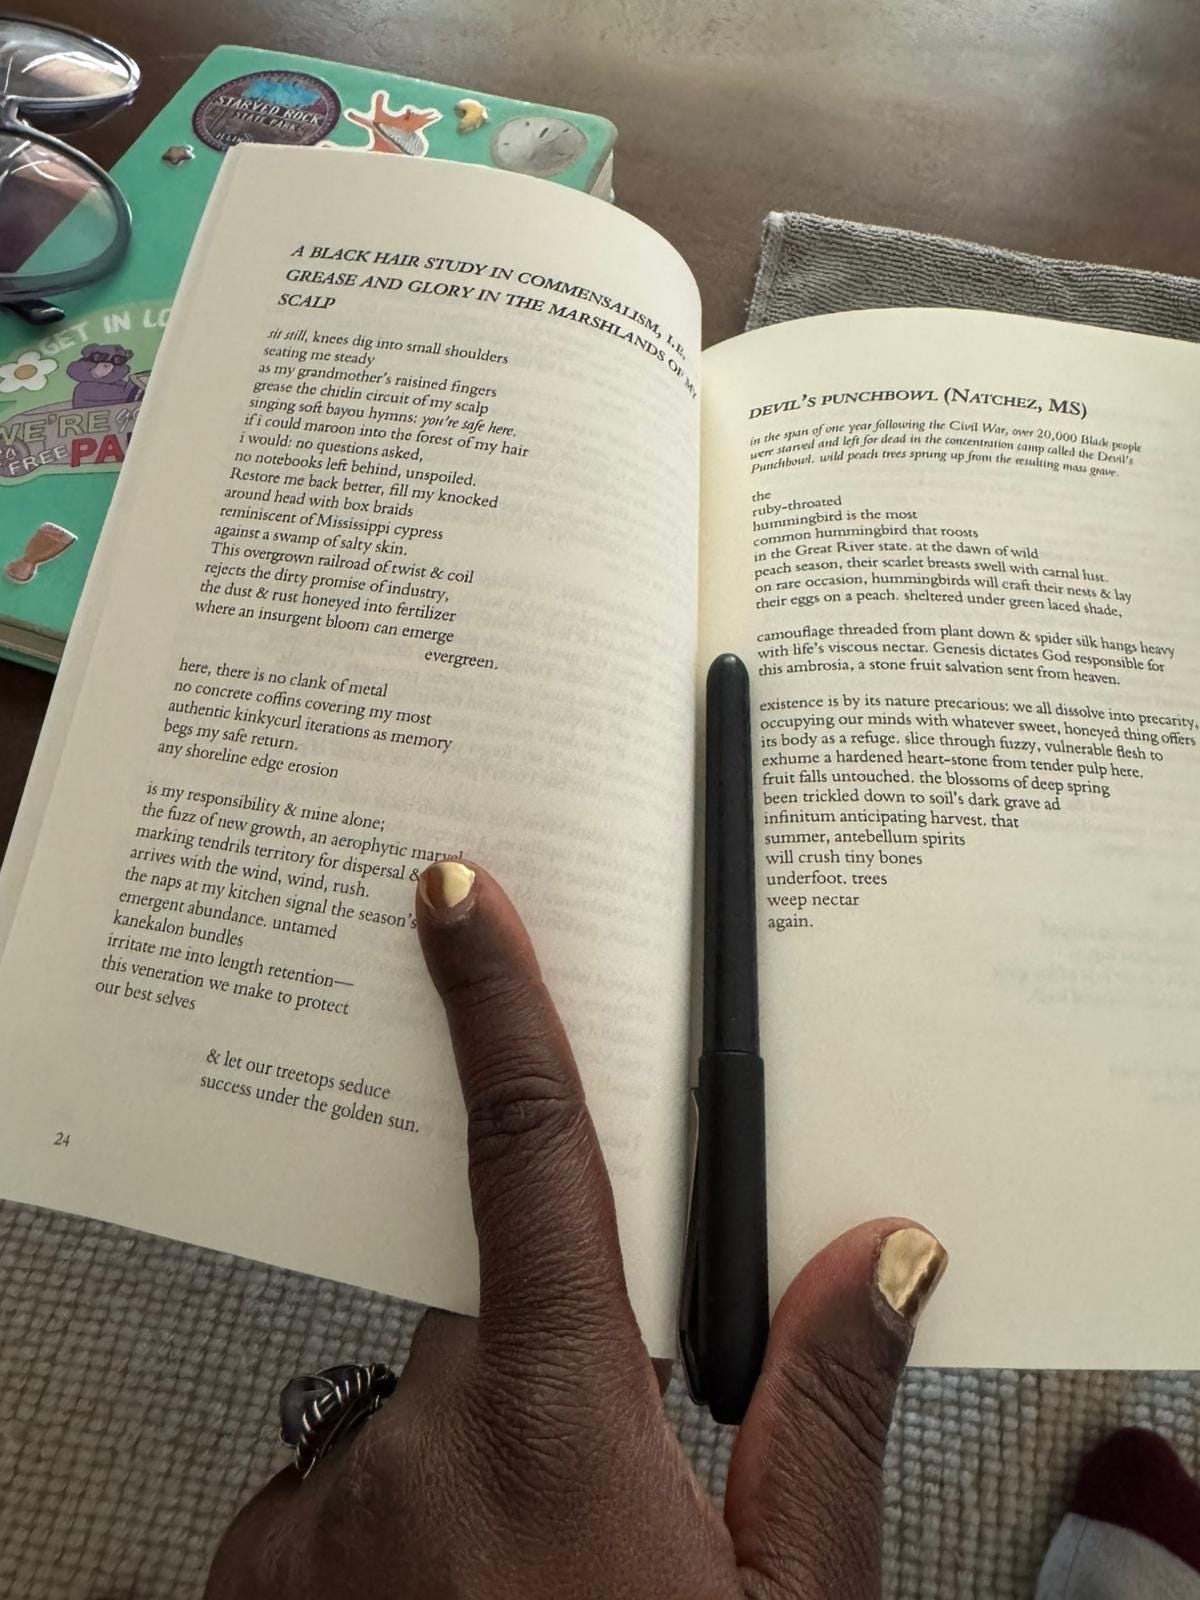 STARVED ROCK
STATE PARK
GET IN
WE'RE
FREE PA
A BLACK HAIR STUDY IN COMMENSALISM, I.E.
GREASE AND GLORY IN THE MARSHLANDS OF MY
SCALP
sit still, knees dig into small shoulders
seating me steady
as my grandmother's raisined fingers
grease the chitlin circuit of my scalp
singing soft bayou hymns: you're safe here.
if i could maroon into the forest of my hair
i would: no questions asked,
no notebooks left behind, unspoiled.
Restore me back better, fill my knocked
around head with box braids
reminiscent of Mississippi cypress
against a swamp of salty skin.
This overgrown railroad of twist & coil
rejects the dirty promise of industry,
the dust & rust honeyed into fertilizer
where an insurgent bloom can emerge
evergreen.
here, there is no clank of metal
no concrete coffins covering my most
authentic kinkycurl iterations as memory
begs my safe return.
any shoreline edge erosion
is my responsibility & mine alone;
the fuzz of new growth, an aerophytic marvel
marking tendrils territory for dispersal &
arrives with the wind, wind, rush.
the naps at my kitchen signal the season's
emergent abundance. untamed
kanekalon bundles
irritate me into length retention—
this veneration we make to protect
our best selves
& let our treetops seduce
success under the golden sun.
24
DEVIL'S PUNCHBOWL (NATCHEZ, MS)
in the span of one year following the Civil War, over 20,000 Black people
were starved and left for dead in the concentration camp called the Devil's
Punchbowl. wild peach trees sprung up from the resulting mass grave.
the
ruby-throated
hummingbird is the most
common hummingbird that roosts
in the Great River state. at the dawn of wild
peach season, their scarlet breasts swell with carnal lust.
on rare occasion, hummingbirds will craft their nests & lay
their eggs on a peach. sheltered under green laced shade,
camouflage threaded from plant down & spider silk hangs heavy
with life's viscous nectar. Genesis dictates God responsible for
this ambrosia, a stone fruit salvation sent from heaven.
existence is by its nature precarious: we all dissolve into precarity,
occupying our minds with whatever sweet, honeyed thing offers
its body as a refuge. slice through fuzzy, vulnerable flesh to
exhume a hardened heart-stone from tender pulp here.
fruit falls untouched. the blossoms of deep spring
been trickled down to soil's dark grave ad
infinitum anticipating harvest. that
summer, antebellum spirits
will crush tiny bones
underfoot. trees
weep nectar
again.